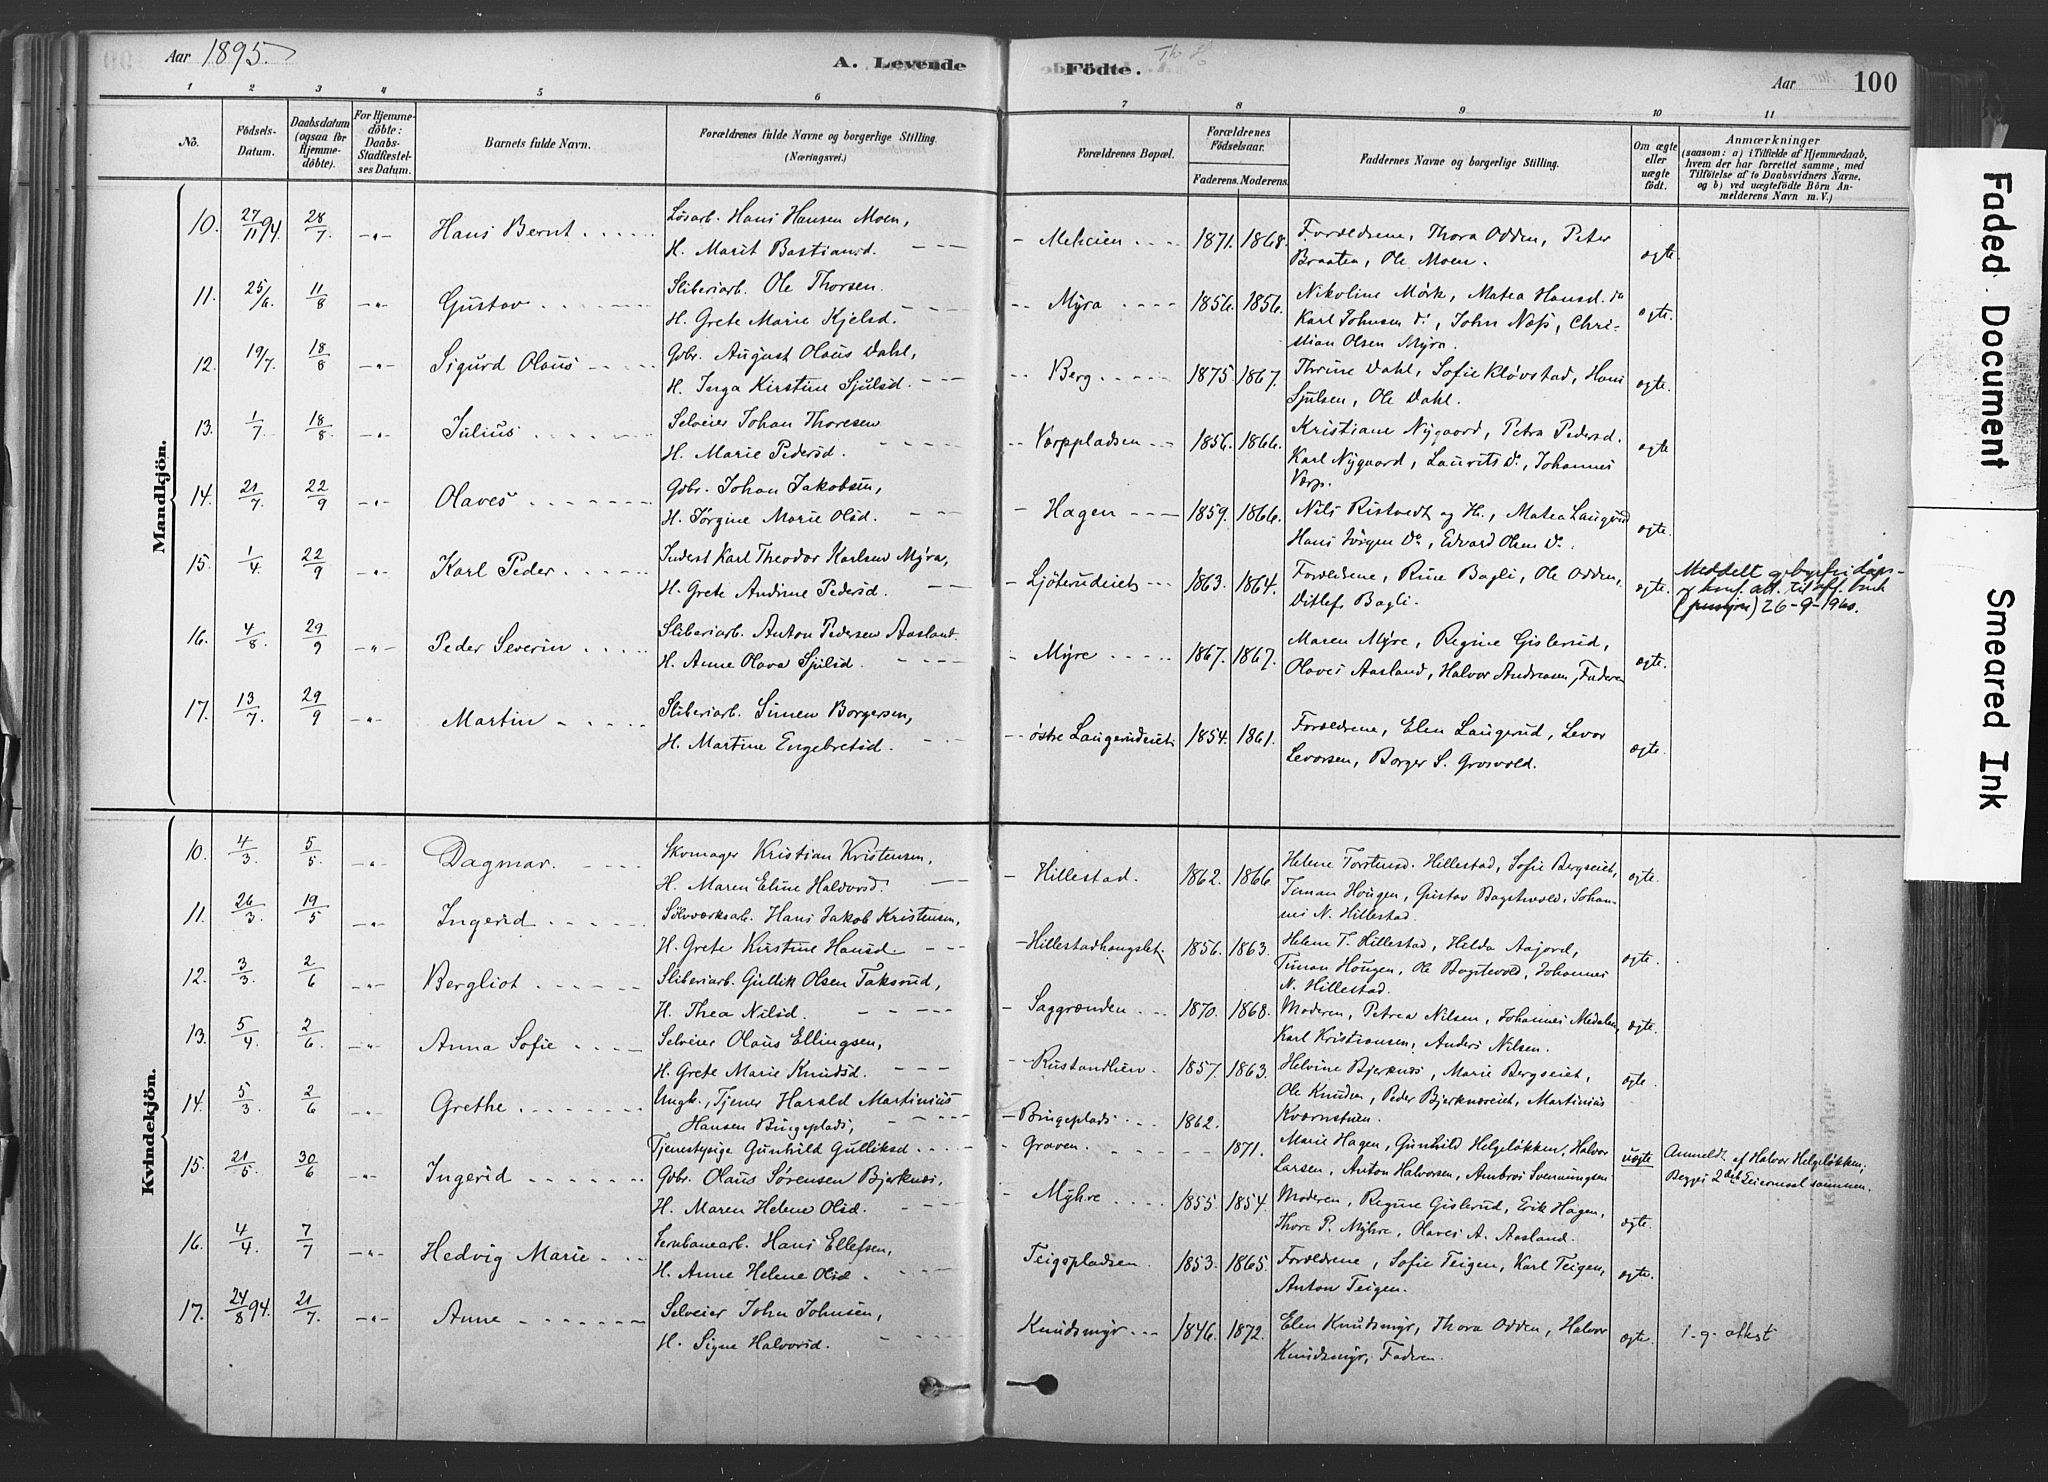 Aar 1895.
A. Levende
Födte.
Aar
100
1 2 3 4 5 6 7 8 9 10 11
No.
Födsels-Datum.
Daabsdatum (ogsaa for Hjemmedöbte).
For Hjemmedöbte: Daabs-Stadfæstelses Datum.
Barnets fulde Navn.
Forældrenes fulde Navne og borgerlige Stilling.
(Næringsvei.)
Forældrenes Bopæl.
Forældrenes Födselsaar.
Faderens. Moderens.
Faddernes Navne og borgerlige Stilling.
Om ægte eller uægte födt.
Anmærkninger
(saasom: a) i Tilfælde af Hjemmedaab, hvem der har forrettet samme, med Tilföielse af to Daabsvidners Navne, og b) ved uægtefödte Börn Anmelderens Navn m. V.)
Mandkjön.
10. 27/11 94. 28/7 -"- Hans Bernt
Løsarb. Hans Hansen Moen,
H. Marit Bastiansd.
Meheien 1871. 1868.
Forældrene, Thora Odden, Peter
Braaten, Ole Moen.
ægte.
11. 25/6. 11/8 -"- Gustav
Sliberiarb. Ole Thorsen.
H. Grete Marie Kjelsd.
Myra 1856. 1856.
Nikoline Mørk, Matea Hansd. do
Karl Johnsen do, John Næss, Chri-
stian Olsen Myra.
ægte.
12. 19/7. 18/8 -"- Sigurd Olaus
Gbr. August Olaus Dahl,
H. Inga Kirstine Sjulsd.
Berg 1875 1867.
Thrine Dahl, Sofie Kløvstad, Hans
Sjulsen, Ole Dahl.
ægte.
13. 1/7 18/8 -"- Julius
Selveier Johan Thoresen
H. Marie Pedersd.
Værppladsen 1856. 1866.
Kristiane Nygaard, Petra Pedersd.
Karl Nygaard, Laurits do, Johannes
Værp.
ægte
14. 21/7 22/9 -"- Olaves
Gbr. Johan Jakobsen,
H. Jørgine Marie Olsd.
Hagen 1859. 1866.
Nils Ristvedt og H., Matea Laugerud
Hans Jørgen do, Edvard Olsen do.
ægte.
15. 1/4 22/9 -"- Karl Peder
Inderst Karl Theodor Karlsen Myra,
H. Grete Andrine Pedersd.
Ljøterudeiet 1863. 1864.
Forældrene, Rine Bagli, Ole Odden,
Ditlefs Bagli.
ægte.
Meddelt gebyrfri dåps-
(pensjon) 26-9-1960.
16. 4/8 29/9 -"- Peder Severin
Sliberiarb. Anton Pedersen Aasland.
H. Anne Olava Sjulsd.
Myre 1867. 1867.
Maren Myre, Regine Gislerud,
Olaves Aasland, Halvor Andreasen, Faderen
ægte.
17. 13/7 29/9 -"- Martin
Sliberiarb. Simen Borgersen,
H. Martine Engebretsd.
østre Laugerudeiet 1854. 1861.
Forældrene, Elen Laugerud, Levor
Levorsen, Borger S. Grosvold.
ægte.
Kvindekjön.
10. 4/3 5/5 -"- Dagmar.
Skomager Kristian Kristensen,
H. Maren Eline Halvorsd.
Hillestad. 1862. 1866
Helene Torstensd. Hillestad, Sofie Bergseiet,
Timan Hougen, Gustav Bagstevold, Johan-
nes N. Hillestad.
ægte.
11. 26/3 19/5 -"- Ingerid
Sølvværksarb. Hans Jakob Kristensen,
H. Grete Kirstine Hansd.
Hillestadhougslet 1856. 1863.
Helene T. Hillestad, Helda Aajord,
Timan Hougen, Ole Bagstevold, Johannes
N. Hillestad.
ægte.
12. 3/3 2/6 -"- Bergliot
Sliberiarb. Gullik Olsen Taksrud,
H. Thea Nilsd.
Saggrænden 1870. 1868.
Moderen, Petrea Nilsen, Johannes Medalen,
Karl Kristiansen, Anders Nilsen.
ægte.
13. 5/4 2/6 -"- Anna Sofie
Selveier Olaus Ellingsen,
H. Grete Marie Knudsd.
Rustandlien 1857. 1863.
Helvine Bjerknæs, Marie Bergseiet,
Ole Knudsen, Peder Bjerknæseiet, Martinius
Kværnstuen.
ægte.
14. 5/3 2/6 -"- Grethe
Ungk., Tjener Harald Martinius
Hansen Bingeplads,
Tjenestepige Gunhild Gulliksd.
Bingeplads 1862.
Graven 1871.
Marie Hagen, Gunhild Helgeløkken, Halvor
Larsen, Anton Halvorsen, Ambros Svenningsen
uægte
Anmeldt af Halvor Helgeløkken;
Begges 2det Leiermaal sammen.
15. 21/5. 30/6 -"- Ingerid
Gbr. Olaus Sørensen Bjerknæs,
H. Maren Helene Olsd.
Myhre 1855. 1854.
Moderen, Regine Gislerud, Erik Hagen,
Thore P. Myhre, Olaves A. Aasland.
ægte.
16. 4/4. 7/7 -"- Hedvig Marie
Jernbanearb. Hans Ellefsen,
H. Anne Helene Olsd.
Teigspladsen. 1853. 1865.
Forældrene, Sofie Teigen, Karl Teigen,
Anton Teigen.
ægte.
17. 24/8 94. 21/7 -"- Anne
Selveier John Johnsen,
H. Signe Halvorsd.
Knudsmyr 1846. 1872.
Elen Knudsmyr, Thora Odden, Halvor
Knudsmyr, Faderen.
ægte.
Faded Document
Smeared Ink